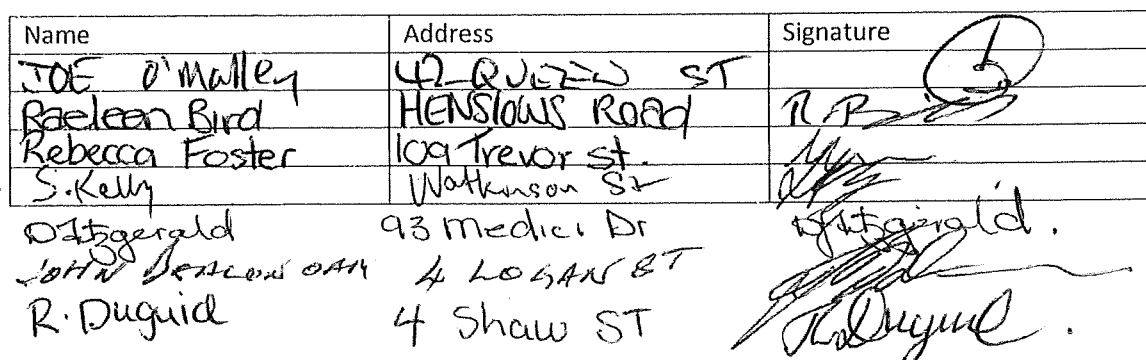 Name Address Signature
JOE O'Malley 42 QUEEN ST
Raeleen Bird HENSLOWS ROAD R Bird
Rebecca Foster 109 Trevor St.
S. Kelly Watkinson St
D Fitzgerald 93 Medici Dr D Fitzgerald.
JOHN DEACON OAM 4 LOGAN ST
R. Duguid 4 Shaw ST R Duguid.